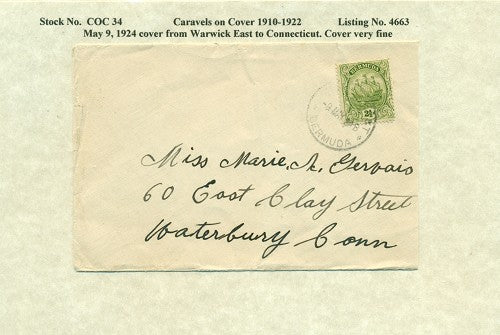 Stock No. COC 34 Caravels on Cover 1910-1922 Listing No. 4663
May 9, 1924 cover from Warwick East to Connecticut. Cover very fine
BERMUDA
2½
BERMUDA
Miss Marie, A, Gervais
60 East Clay Street
Waterbury Conn